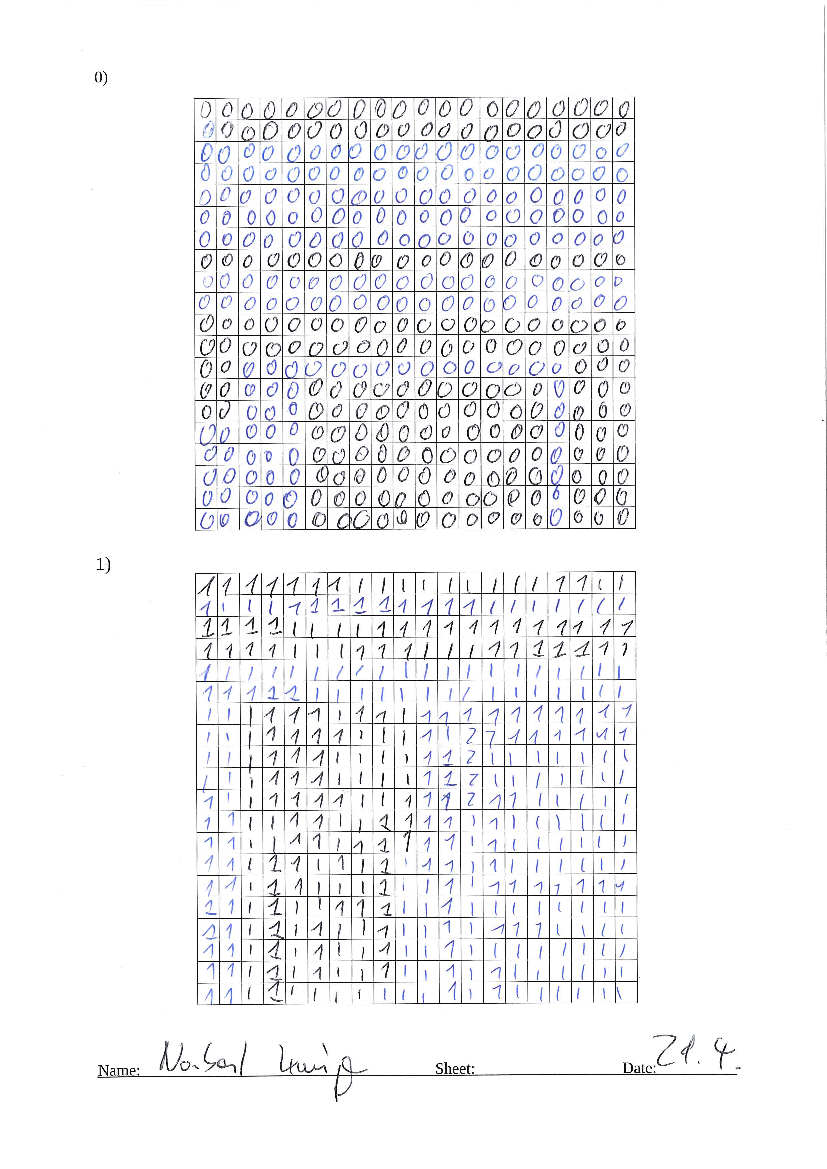 0)
0 0 0 0 0 0 0 0 0 0 0 0 0 0 0 0 0 0 0 0
0 0 0 0 0 0 0 0 0 0 0 0 0 0 0 0 0 0 0 0
0 0 0 0 0 0 0 0 0 0 0 0 0 0 0 0 0 0 0 0
0 0 0 0 0 0 0 0 0 0 0 0 0 0 0 0 0 0 0 0
0 0 0 0 0 0 0 0 0 0 0 0 0 0 0 0 0 0 0 0
0 0 0 0 0 0 0 0 0 0 0 0 0 0 0 0 0 0 0 0
0 0 0 0 0 0 0 0 0 0 0 0 0 0 0 0 0 0 0 0
0 0 0 0 0 0 0 0 0 0 0 0 0 0 0 0 0 0 0 0
0 0 0 0 0 0 0 0 0 0 0 0 0 0 0 0 0 0 0 0
0 0 0 0 0 0 0 0 0 0 0 0 0 0 0 0 0 0 0 0
0 0 0 0 0 0 0 0 0 0 0 0 0 0 0 0 0 0 0 0
0 0 0 0 0 0 0 0 0 0 0 0 0 0 0 0 0 0 0 0
0 0 0 0 0 0 0 0 0 0 0 0 0 0 0 0 0 0 0 0
0 0 0 0 0 0 0 0 0 0 0 0 0 0 0 0 0 0 0 0
0 0 0 0 0 0 0 0 0 0 0 0 0 0 0 0 0 0 0 0
0 0 0 0 0 0 0 0 0 0 0 0 0 0 0 0 0 0 0 0
0 0 0 0 0 0 0 0 0 0 0 0 0 0 0 0 0 0 0 0
0 0 0 0 0 0 0 0 0 0 0 0 0 0 0 0 0 0 0 0
0 0 0 0 0 0 0 0 0 0 0 0 0 0 0 0 0 0 0 0
0 0 0 0 0 0 0 0 0 0 0 0 0 0 0 0 0 0 0 0
1)
1 1 1 1 1 1 1 1 1 1 1 1 1 1 1 1 1 1 1 1
1 1 1 1 1 1 1 1 1 1 1 1 1 1 1 1 1 1 1 1
1 1 1 1 1 1 1 1 1 1 1 1 1 1 1 1 1 1 1 1
1 1 1 1 1 1 1 1 1 1 1 1 1 1 1 1 1 1 1 1
1 1 1 1 1 1 1 1 1 1 1 1 1 1 1 1 1 1 1 1
1 1 1 1 1 1 1 1 1 1 1 1 1 1 1 1 1 1 1 1
1 1 1 1 1 1 1 1 1 1 1 1 1 1 1 1 1 1 1 1
1 1 1 1 1 1 1 1 1 1 1 1 1 1 1 1 1 1 1 1
1 1 1 1 1 1 1 1 1 1 1 1 1 1 1 1 1 1 1 1
1 1 1 1 1 1 1 1 1 1 1 1 1 1 1 1 1 1 1 1
1 1 1 1 1 1 1 1 1 1 1 1 1 1 1 1 1 1 1 1
1 1 1 1 1 1 1 1 1 1 1 1 1 1 1 1 1 1 1 1
1 1 1 1 1 1 1 1 1 1 1 1 1 1 1 1 1 1 1 1
1 1 1 1 1 1 1 1 1 1 1 1 1 1 1 1 1 1 1 1
1 1 1 1 1 1 1 1 1 1 1 1 1 1 1 1 1 1 1 1
1 1 1 1 1 1 1 1 1 1 1 1 1 1 1 1 1 1 1 1
1 1 1 1 1 1 1 1 1 1 1 1 1 1 1 1 1 1 1 1
1 1 1 1 1 1 1 1 1 1 1 1 1 1 1 1 1 1 1 1
1 1 1 1 1 1 1 1 1 1 1 1 1 1 1 1 1 1 1 1
1 1 1 1 1 1 1 1 1 1 1 1 1 1 1 1 1 1 1 1
Name: Sheet: Date: 21.4.